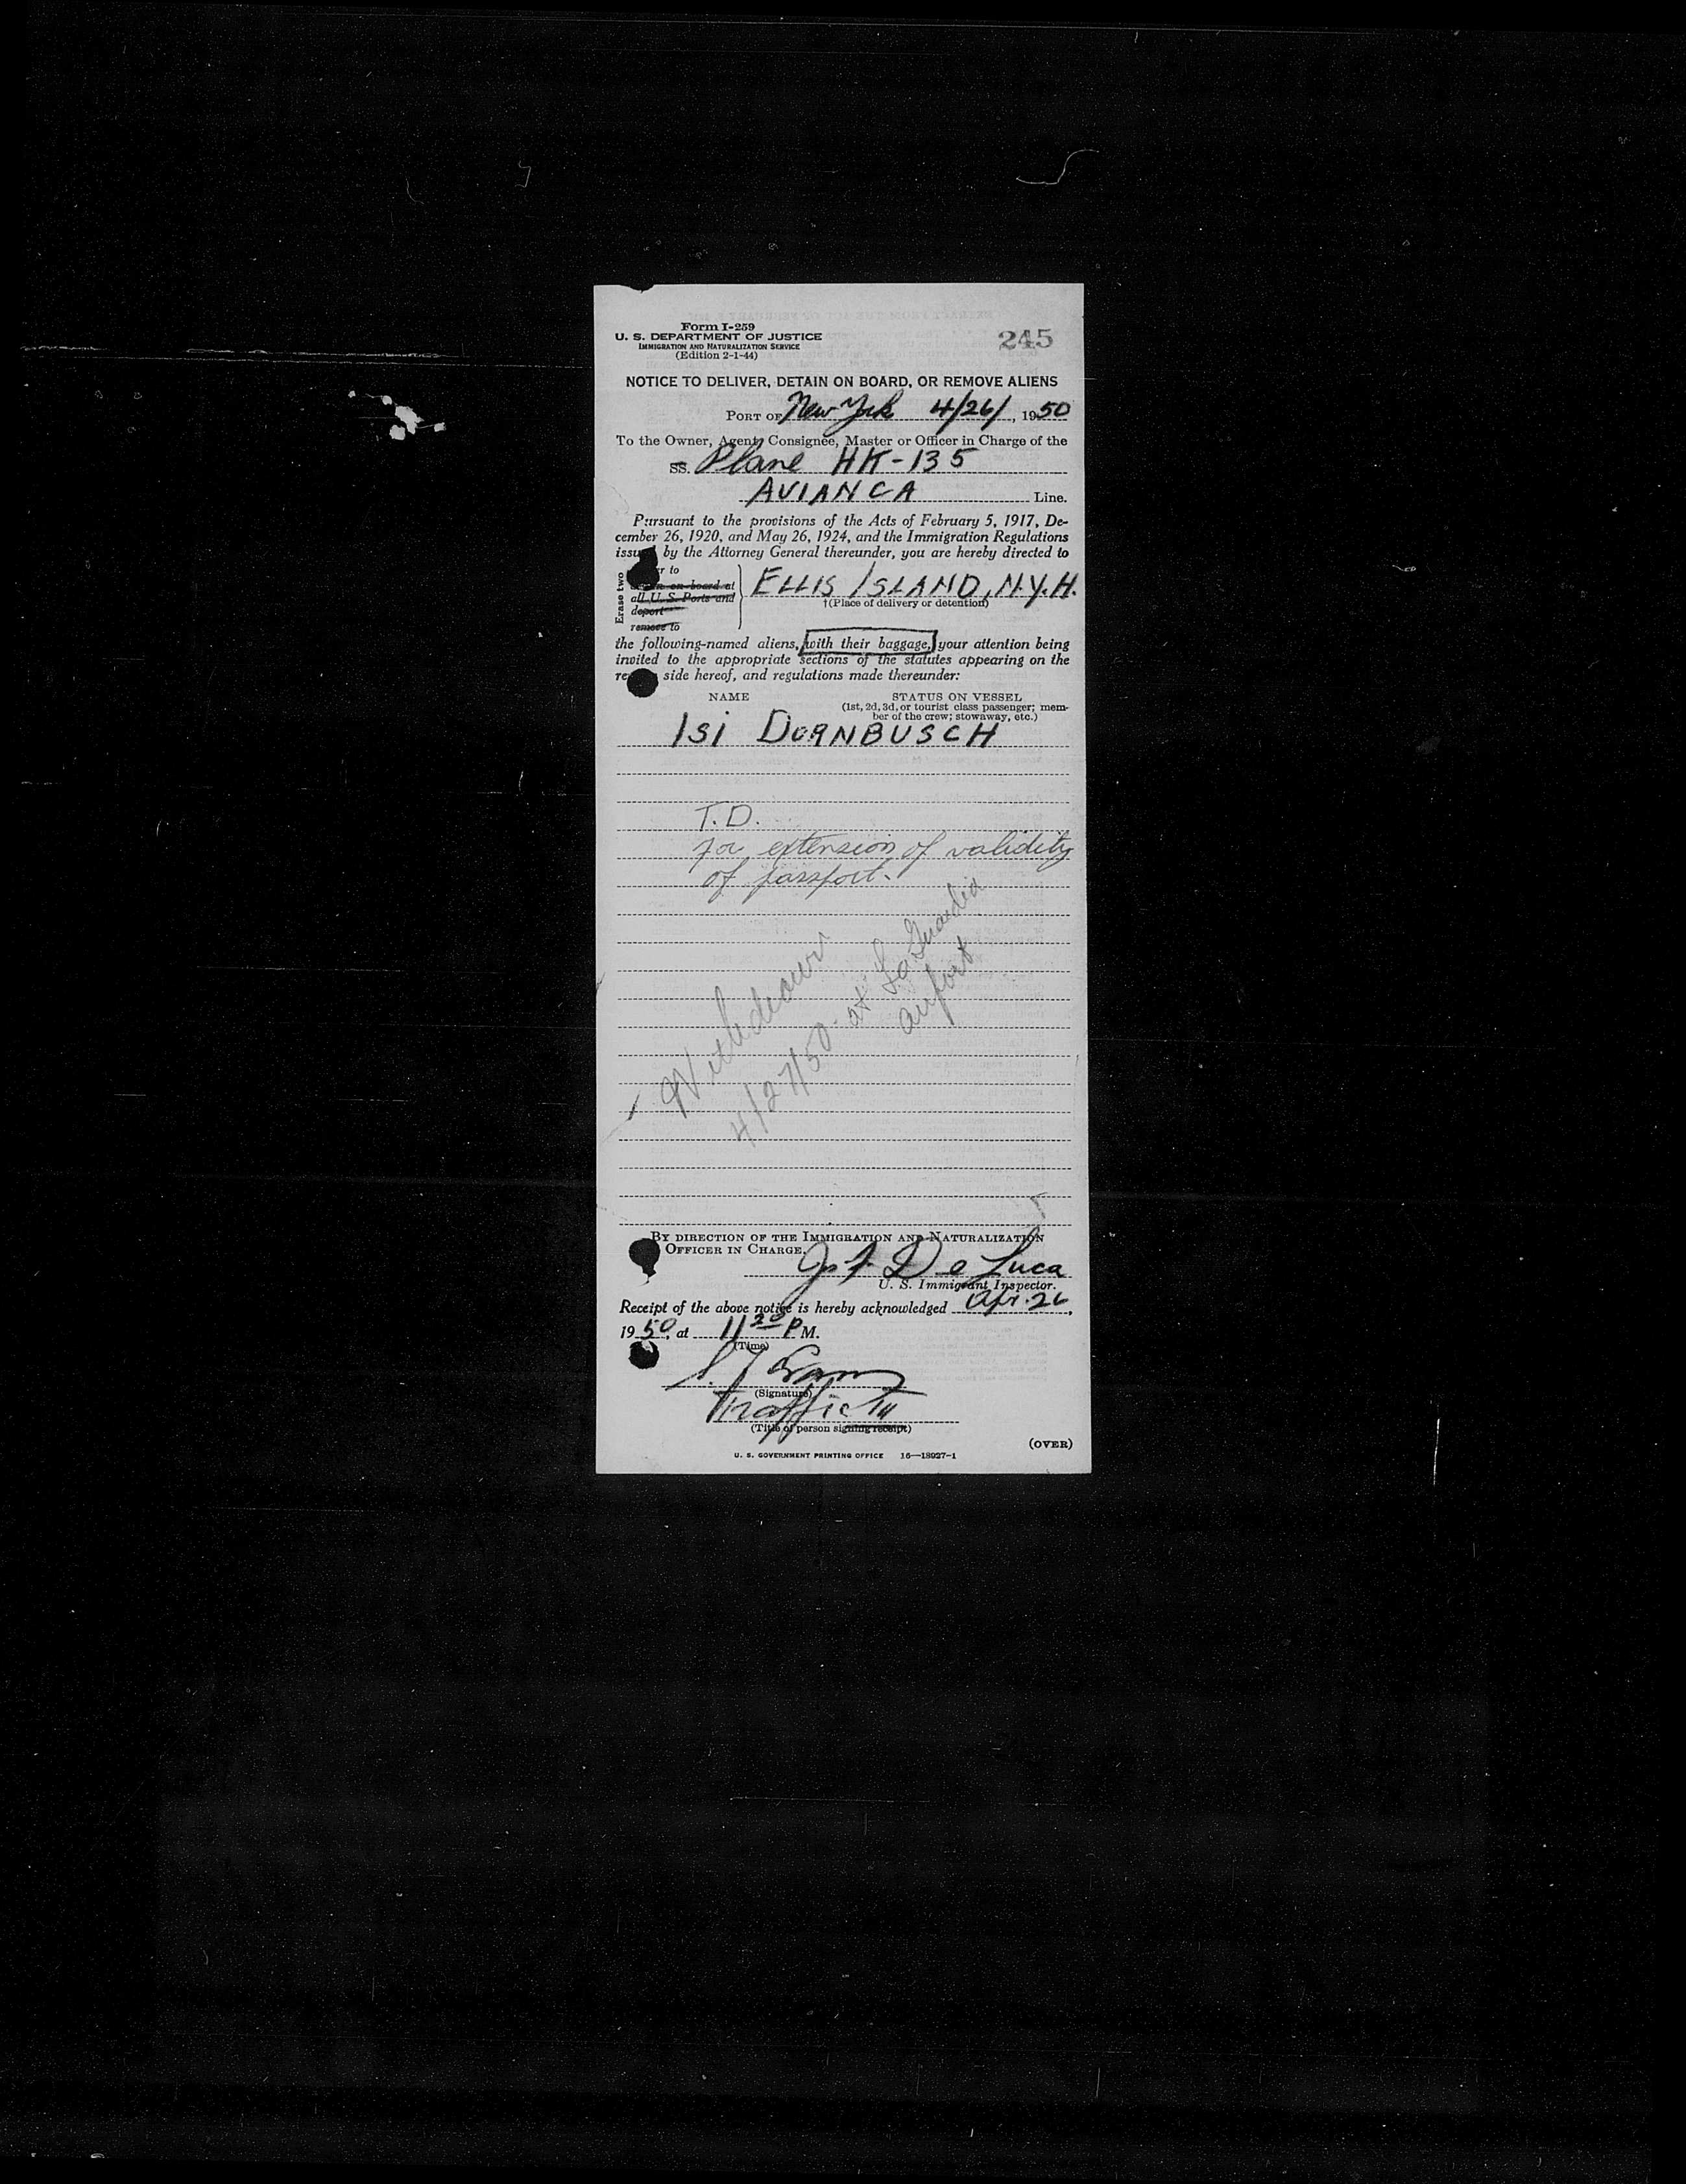 Form I-259
U. S. DEPARTMENT OF JUSTICE
IMMIGRATION AND NATURALIZATION SERVICE
(Edition 2-1-44)
245
NOTICE TO DELIVER, DETAIN ON BOARD, OR REMOVE ALIENS
PORT OF New York 4/26/, 1950
To the Owner, Agent, Consignee, Master or Officer in Charge of the
SS. Plane HK-135
AVIANCA Line.
Pursuant to the provisions of the Acts of February 5, 1917, De-
cember 26, 1920, and May 26, 1924, and the Immigration Regulations
issued by the Attorney General thereunder, you are hereby directed to
Erase two
r to
on board at
all U. S. Ports and
deport
remove to
ELLIS ISLAND, N.Y.H.
†(Place of delivery or detention)
the following-named aliens, with their baggage, your attention being
invited to the appropriate sections of the statutes appearing on the
re side hereof, and regulations made thereunder:
NAME STATUS ON VESSEL
(1st, 2d, 3d, or tourist class passenger; mem-
ber of the crew; stowaway, etc.)
ISI DORNBUSCH
T.D.
for extension of validity
of passport.
Withdrawn
4/27/50 at La Guardia
airport
BY DIRECTION OF THE IMMIGRATION AND NATURALIZATION
OFFICER IN CHARGE.
De Luca
U. S. Immigrant Inspector.
Receipt of the above notice is hereby acknowledged Apr. 26,
1950, at 11 20 P M.
(Time)
(Signature)
Traffic
(Title of person signing receipt)
(OVER)
U. S. GOVERNMENT PRINTING OFFICE 16—18927-1